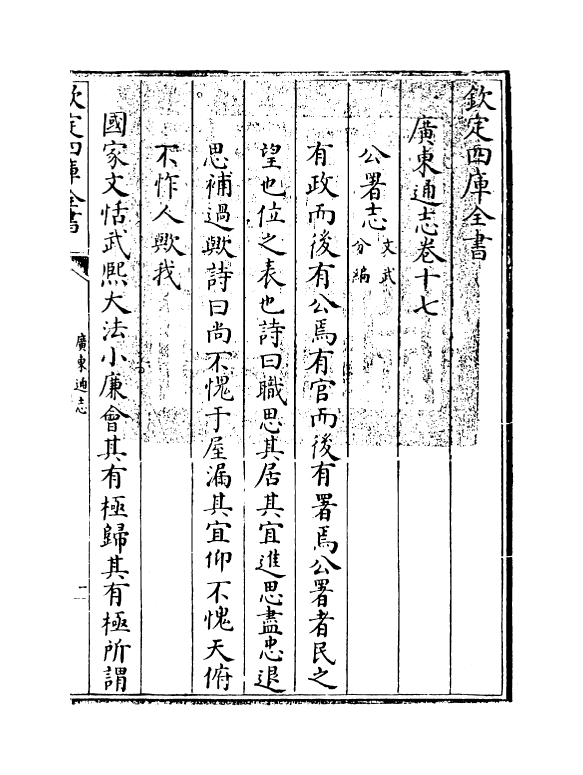 欽定四庫全書
廣東通志卷十七
公署志文武分編
有政而後有公焉有官而後有署焉公署者民之
望也位之表也詩曰職思其居其宜進思盡忠退
思補過歟詩曰尚不愧于屋漏其宜仰不愧天俯
不怍人歟我
國家文恬武熙大法小廉會其有極歸其有極所謂
欽定四庫全書
廣東通志